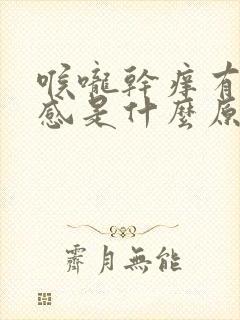 喉嚨幹癢有
感是什麼原
霽月無能